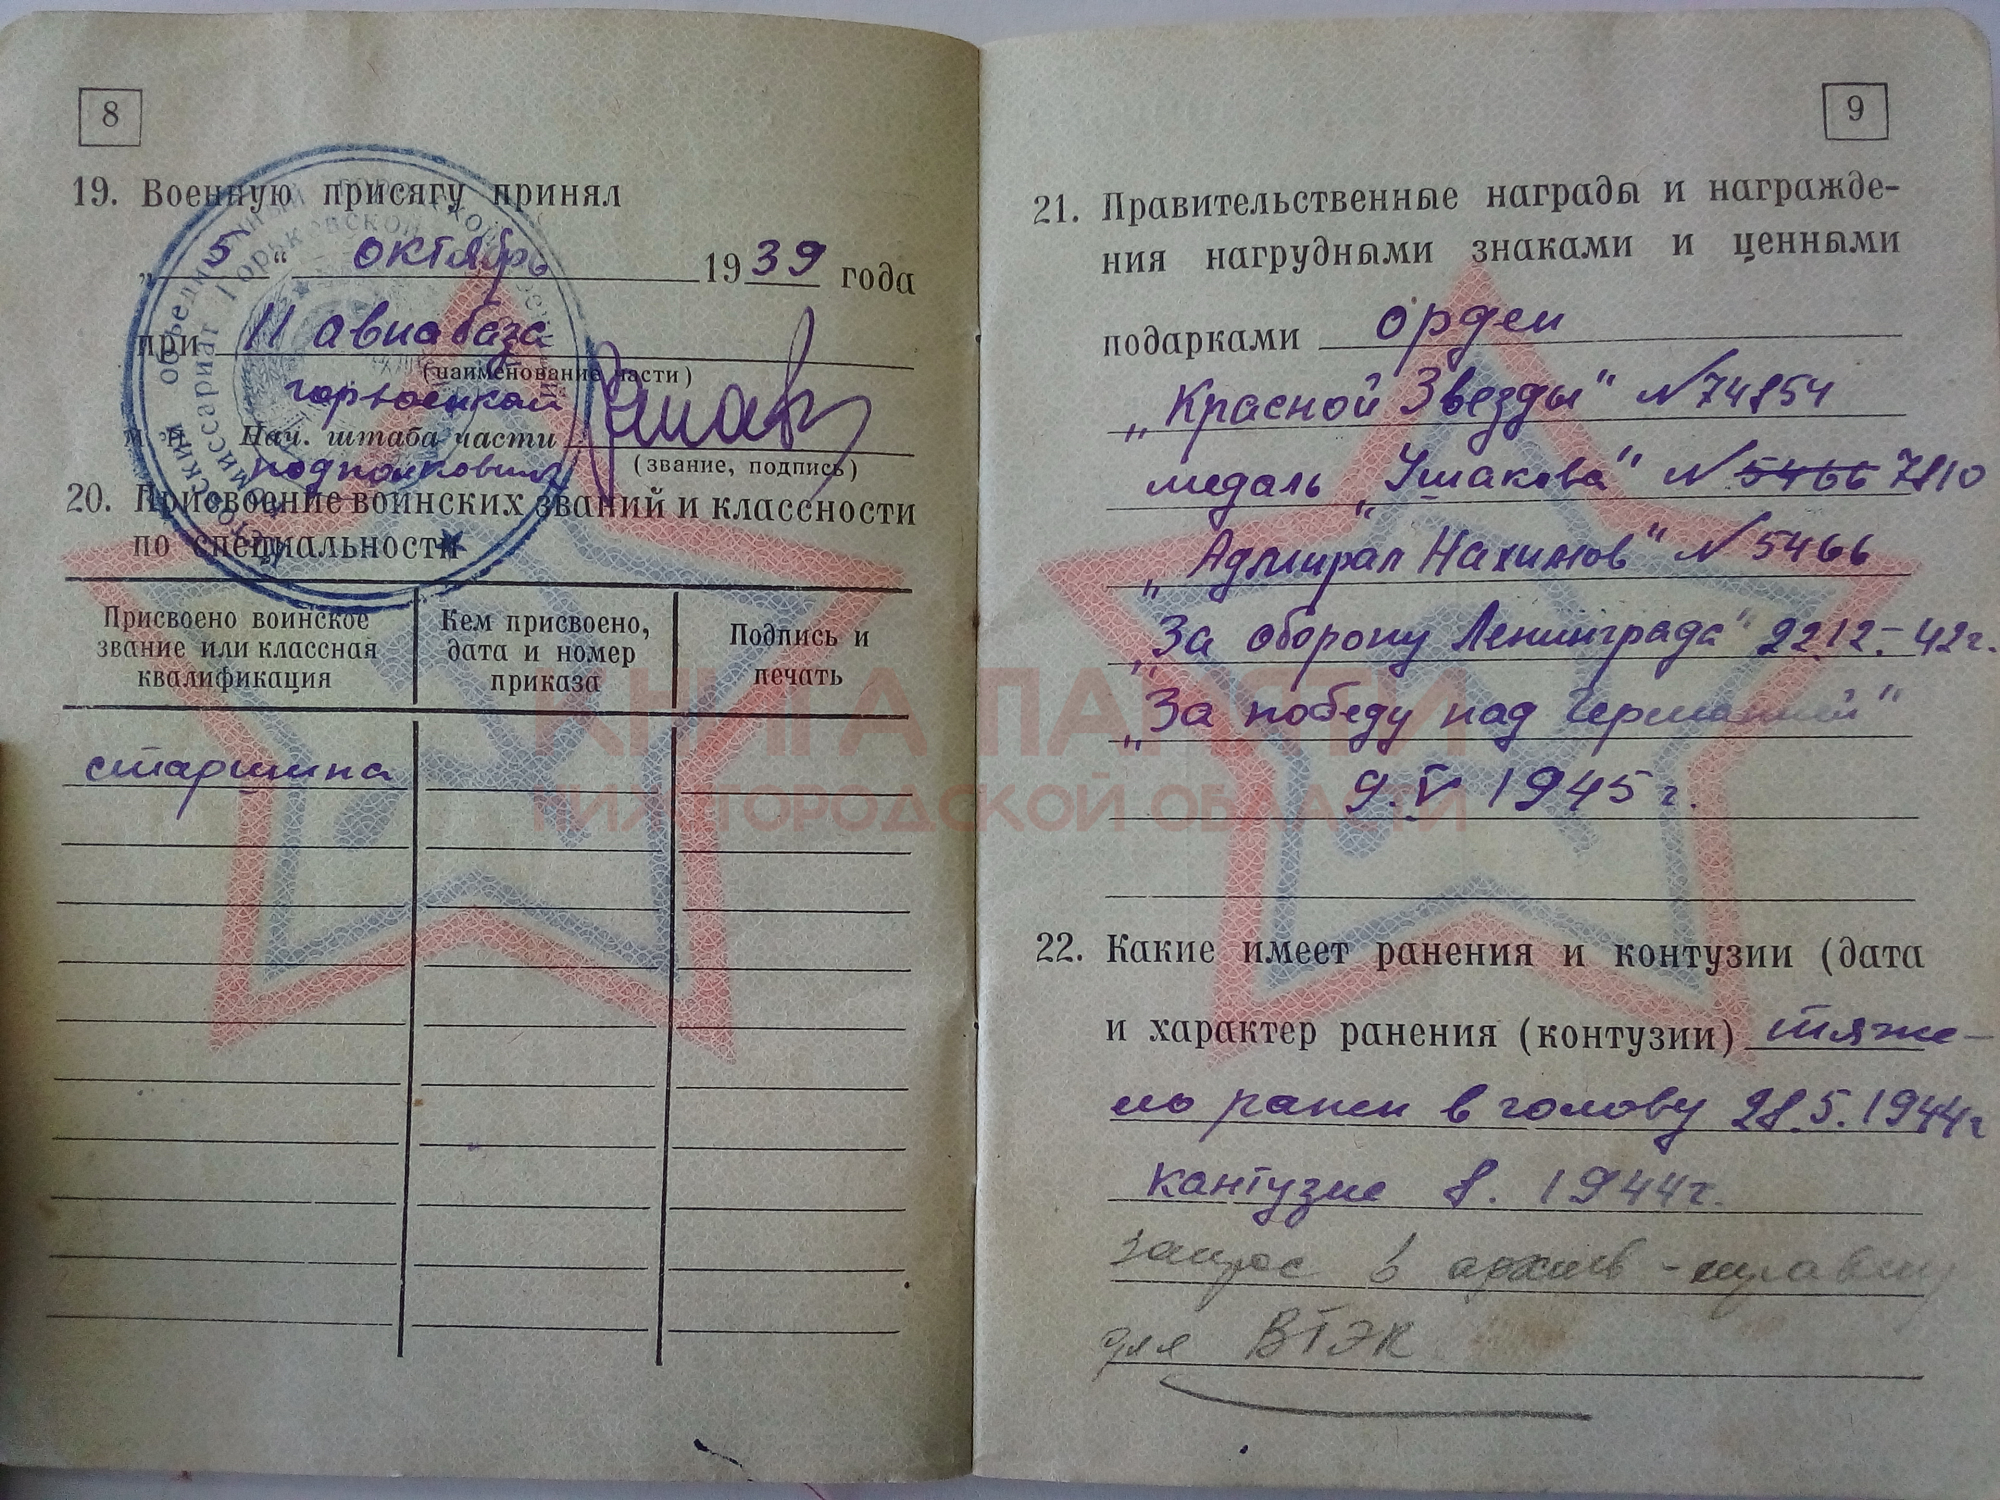 8
19. Военную присягу принял
„ 5 “ октябрь 1939 года
при 11 авиабаза
(наименование части)
горвоенком
М. П. Нач. штаба части
(звание, подпись)
подполковник
20. Присвоение воинских званий и классности
по специальности
Присвоено воинское звание или классная квалификация
Кем присвоено, дата и номер приказа
Подпись и печать
старшина
9
21. Правительственные награды и награжде-
ния нагрудными знаками и ценными
подарками орден
„Красной Звезды" N 74854
медаль „Ушакова" N 5466 7810
„Адмирал Нахимов" N 5466
„За оборону Ленинграда" 22.12.-42г.
„За победу над Германией"
9.V 1945г.
22. Какие имеет ранения и контузии (дата
и характер ранения (контузии) тяже-
ло ранен в голову 28.5.1944г
кантузие 8. 1944г.
запрос в архив -
для ВТЭК
КНИГА ПАМЯТИ
НИЖЕГОРОДСКОЙ ОБЛАСТИ